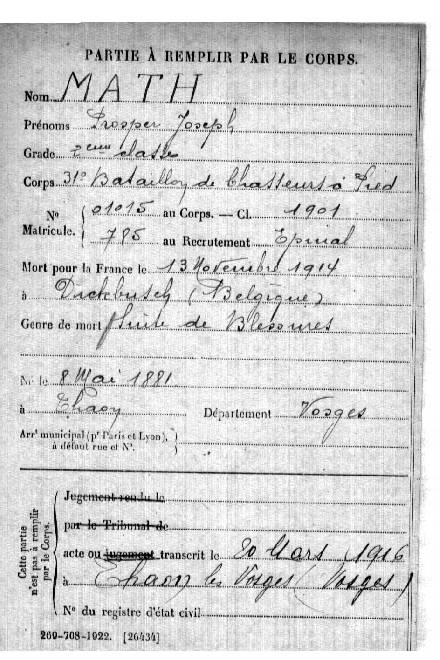 PARTIE À REMPLIR PAR LE CORPS.
Nom MATH
Prénoms Prosper Joseph
Grade 2eme classe
Corps 31e Bataillon de Chasseurs à Pied
N° 01015 au Corps. — Cl. 1901
Matricule. 785 au Recrutement Epinal
Mort pour la France le 13 Novembre 1914
à Dickbusch (Belgique)
Genre de mort Suite de Blessures
Né le 8 Mai 1881
à Thaon Département Vosges
Arrt municipal (pr Paris et Lyon),
à défaut rue et N°.
Cette partie n'est pas à remplir par le Corps.
Jugement rendu le
par le Tribunal de
acte ou jugement transcrit le 20 Mars 1916
à Thaon les Vosges (Vosges)
N° du registre d'état civil
269-708-1922. [26434]